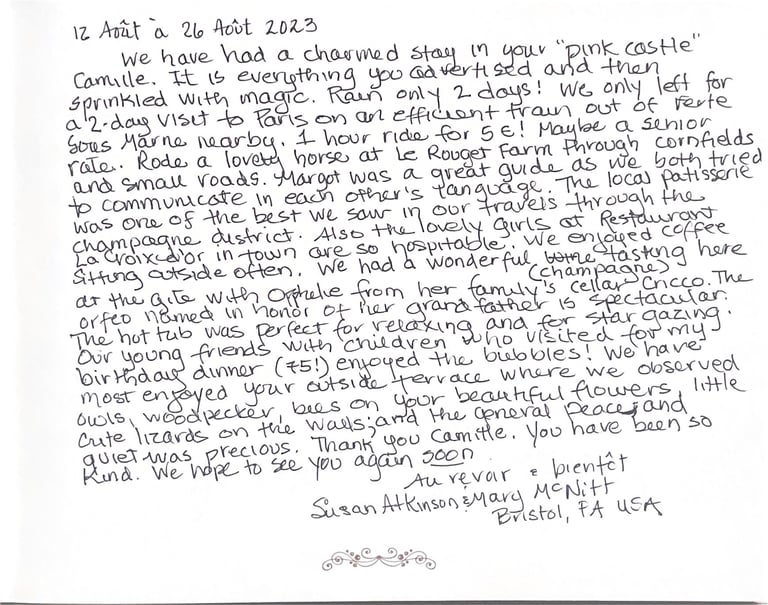 12 Août à 26 Août 2023
We have had a charmed stay in your "pink castle"
Camille. It is everything you advertised and then
sprinkled with magic. Rain only 2 days! We only left for
a 2-day visit to Paris on an efficient train out of Ferte
Sous Marne nearby. 1 hour ride for 5€! Maybe a senior
rate. Rode a lovely horse at Le Rouget Farm through cornfields
and small roads. Margot was a great guide as we both tried
to communicate in each other's language. The local patisserie
was one of the best we saw in our travels through the
champagne district. Also the lovely girls at Restaurant
La Croix d'or in town are so hospitable. We enjoyed coffee
sitting outside often. We had a wonderful wine tasting here
(champagne)
at the gite with Ophelie from her family's cellar Cricco. The
orfeo named in honor of her grandfather is spectacular.
The hot tub was perfect for relaxing and for star gazing.
Our young friends with children who visited for my
birthday dinner (75!) enjoyed the bubbles! We have
most enjoyed your outside terrace where we observed
owls, woodpecker, bees on your beautiful flowers, little
cute lizards on the walls; and the general peace and
quiet was precious. Thank you Camille. You have been so
kind. We hope to see you again soon
Au revoir & bientôt
Susan Atkinson & Mary McNitt
Bristol, PA USA